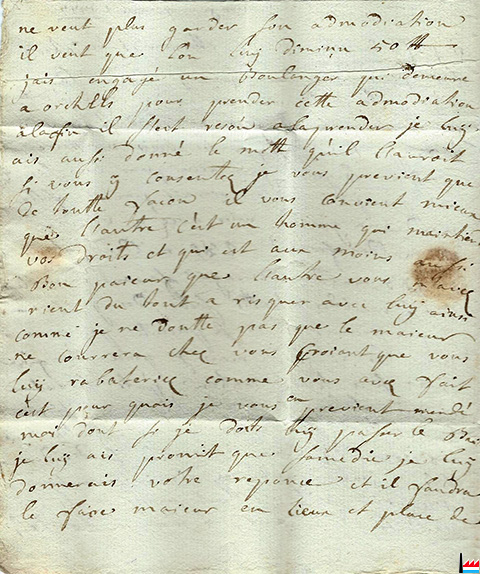 ne veut plus garder son admodiation
il veut que lon luy diminu 50 tt
jais engagé un boulanger qui demeure
a orchells pour prender cette admodiation
alafin il sest resou alaprender je luy
ais aussi donné le mott qu'il l'auroit
si vous y consentez je vous previent que
de toutte facon il vous convient mieux
que l'autre c'est un homme qui maintien
vos droits et qui est aux moins aussi
bon paieur que l'autre vous n'avez
rient du tout a risquer avec luy ainsi
comme je ne doutte pas que le maieur
ne courrera chez vous croiant que vous
luy rabaterez comme vous avez fait
c'est pour quois je vous en previent mendé
moi dont si je dois luy passer le bail
je luy ais promit que samedie je luy
donnerais votre reponce et il faudra
le faire maieur en lieux et place de